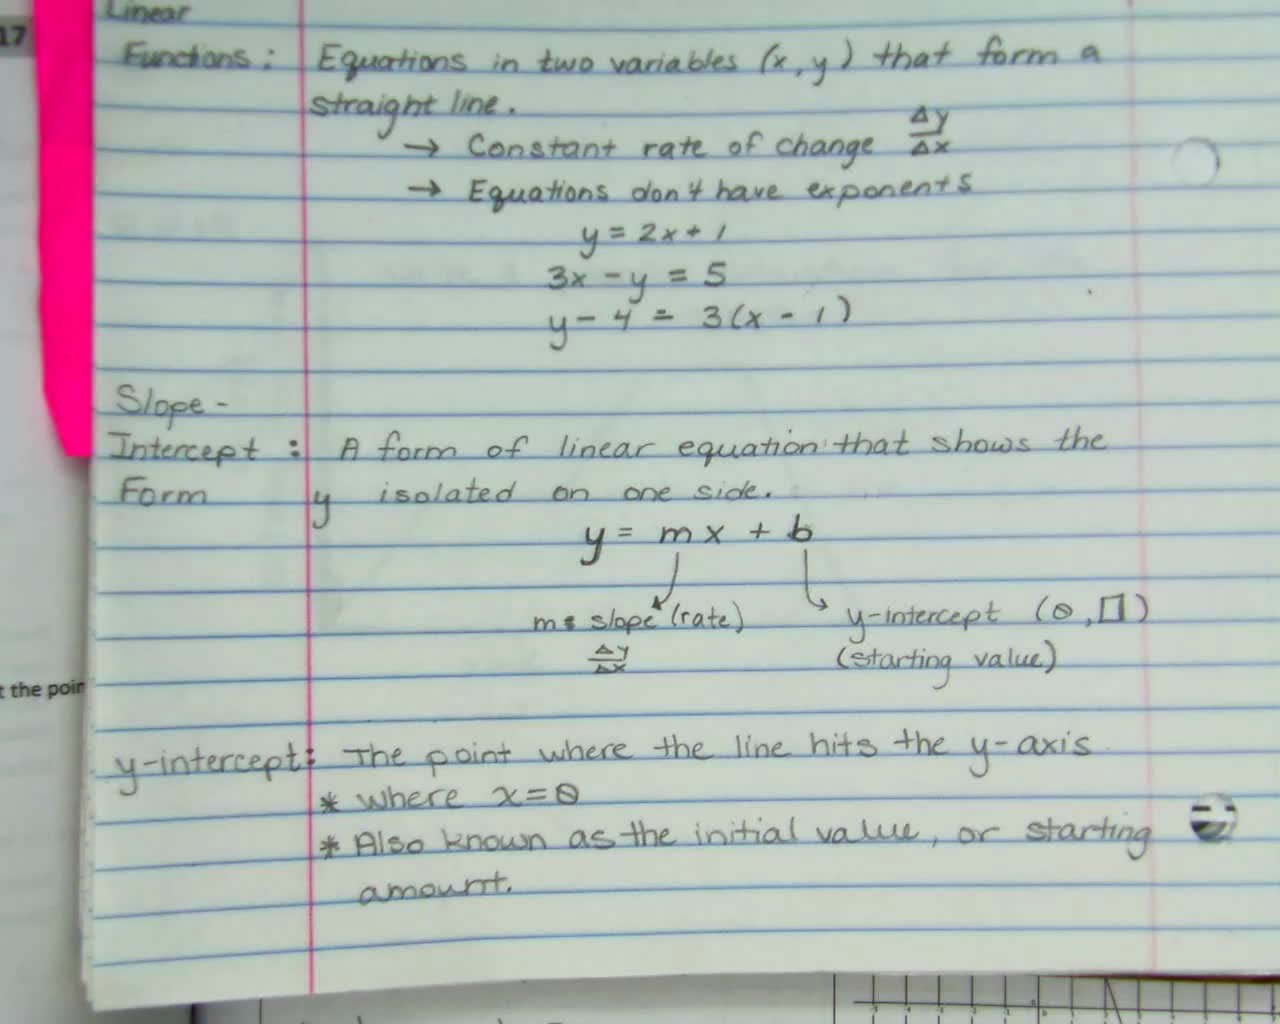 17
Linear
Functions: Equations in two variables (x, y) that form a
straight line.
→ Constant rate of change Δy/Δx
→ Equations don't have exponents
y = 2x + 1
3x - y = 5
y - 4 = 3(x - 1)
Slope -
Intercept : A form of linear equation that shows the
Form y isolated on one side.
y = mx + b
m = slope (rate) y-intercept (0, □)
Δy/Δx (starting value)
t the poin
y-intercept: The point where the line hits the y-axis
* where x = 0
* Also known as the initial value, or starting
amount.